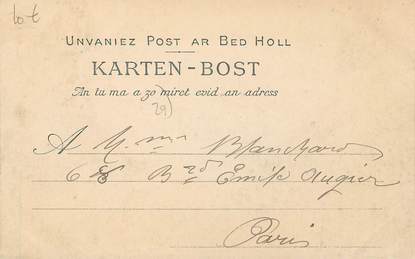 lot
UNVANIEZ POST AR BED HOLL
KARTEN-BOST
An tu ma a zo miret evid an adress
29
A M. Blanchard
6 Bd Émile Augier
Paris